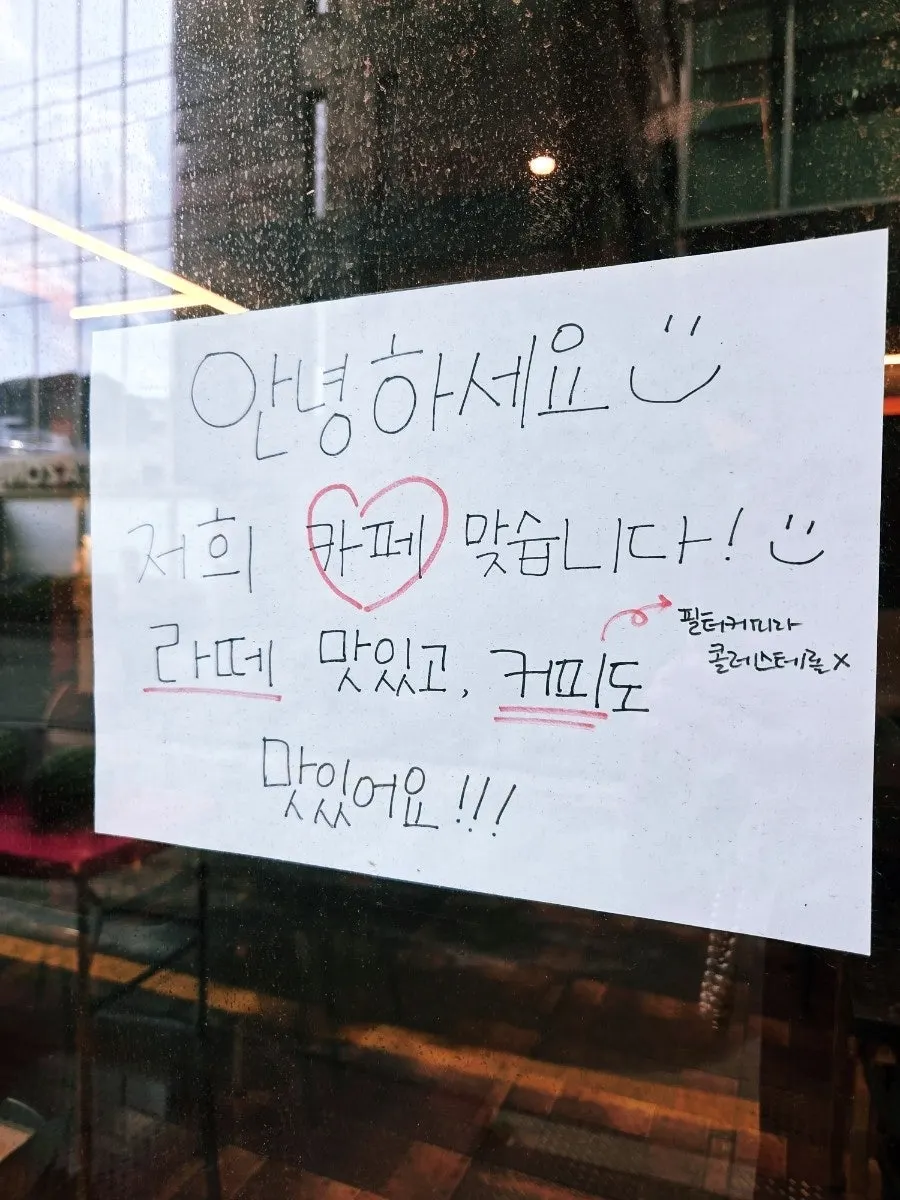 안녕하세요
저희 카페 맞습니다!
라떼 맛있고, 커피도
필터커피라
콜레스테롤 X
맛있어요!!!